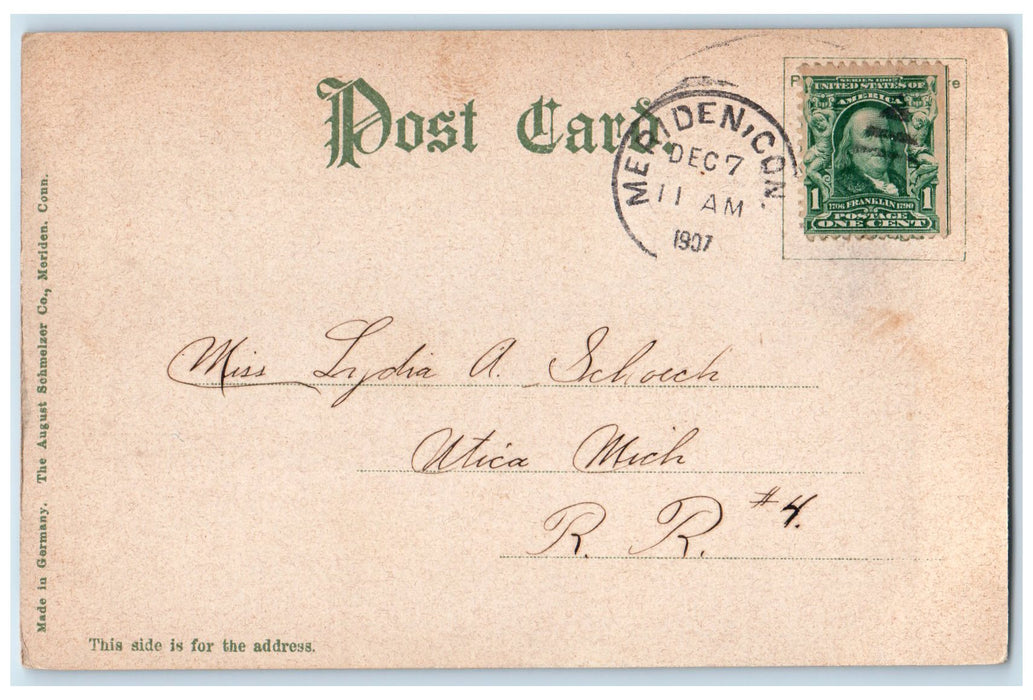 Post Card.
MERIDEN, CON.
DEC 7
11 AM
1907
P re
SERIES 1902
UNITED STATES OF
AMERICA
1 1
1706 FRANKLIN 1790
POSTAGE
ONE CENT
Miss Lydia A. Schoech
Utica Mich
R. R. #4.
Made in Germany. The August Schmelzer Co., Meriden. Conn.
This side is for the address.